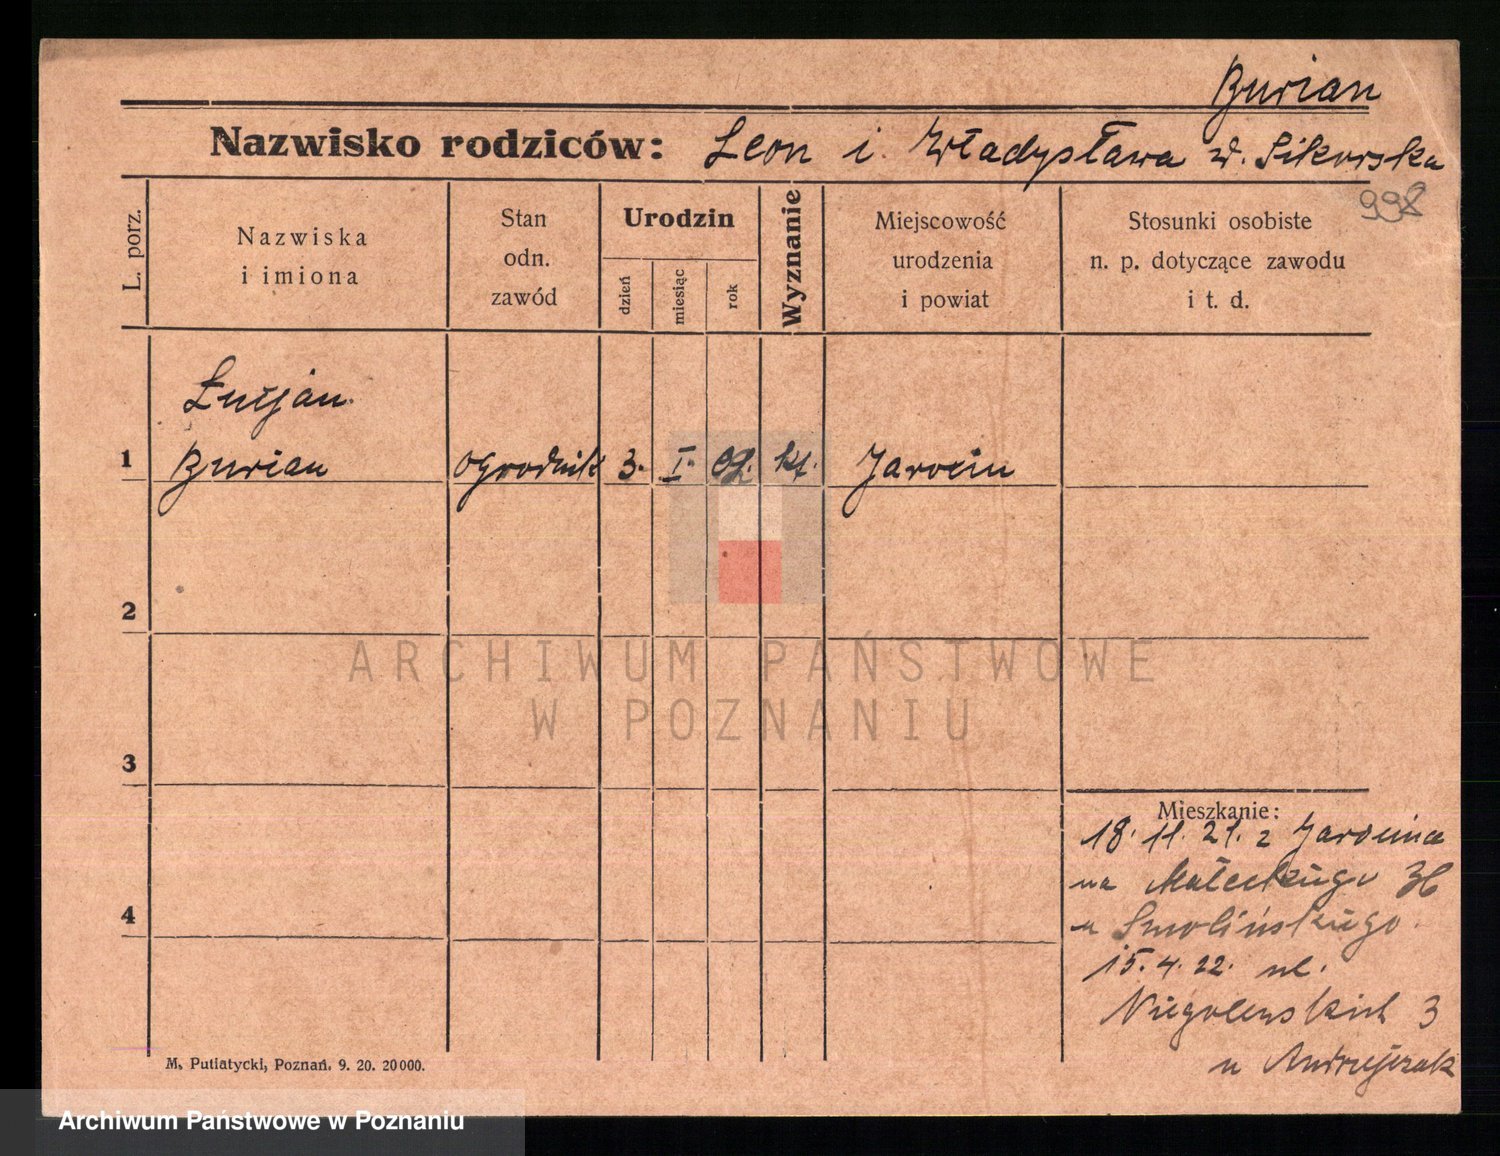 Burian
Nazwisko rodziców: Leon i Władysława z d. Sikorska
998
L. porz.
Nazwiska
i imiona
Stan
odn.
zawód
Urodzin
dzień
miesiąc
rok
Wyznanie
Miejscowość
urodzenia
i powiat
Stosunki osobiste
n. p. dotyczące zawodu
i t. d.
Łucjan
1 Burian ogrodnik 3. I. 02. kt. Jarocin
2
ARCHIWUM PAŃSTWOWE
W POZNANIU
3
4
Mieszkanie:
18. 11. 21. z Jarocina
na Małeckiego 36
u Smolińskiego
15. 4. 22. ul.
Niegolewskich 3
u Andrzejczak
M. Putiatycki, Poznań. 9. 20. 20 000.
Archiwum Państwowe w Poznaniu